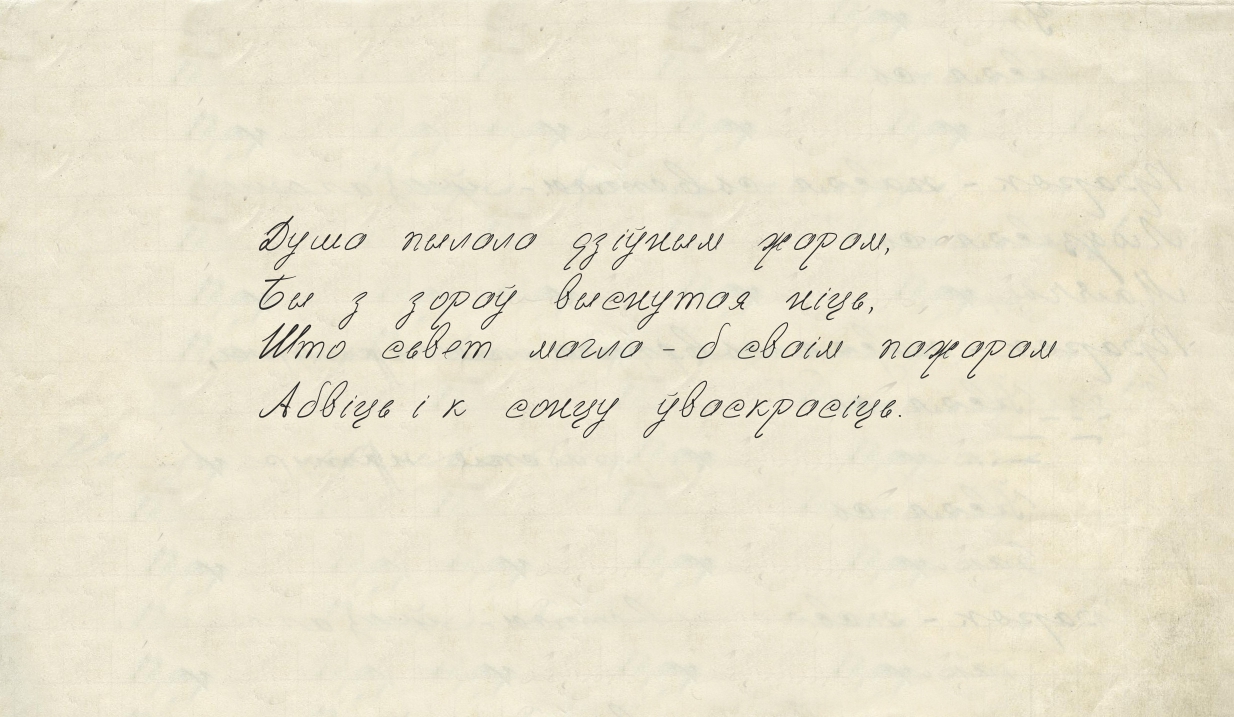 Душа пылала дзіўным жарам,
Бы з зораў выснутая ніць,
Што сьвет магла - б сваім пажарам
Абвіць і к сонцу ўваскрасіць.